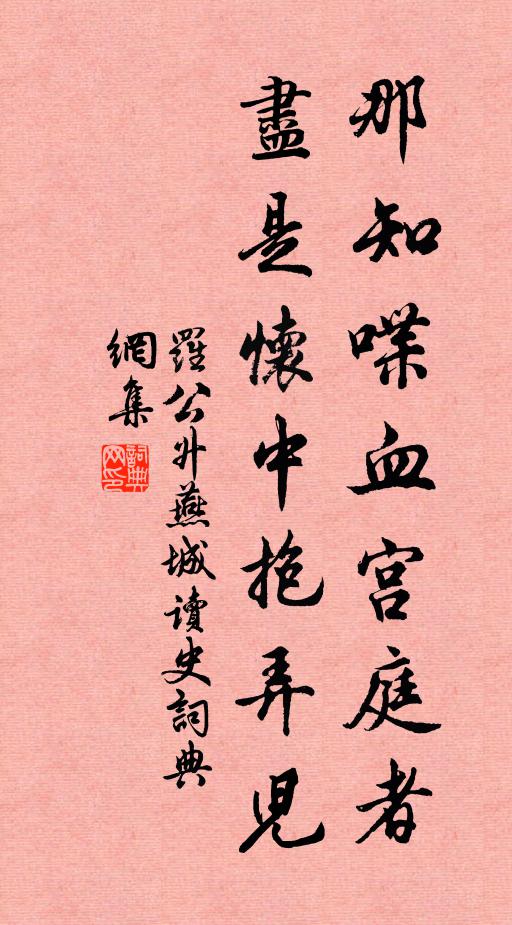 那知喋血宫庭者
盡是懷中抱弄兒
羅公升燕城讀史詞典
網集
詞典
网印